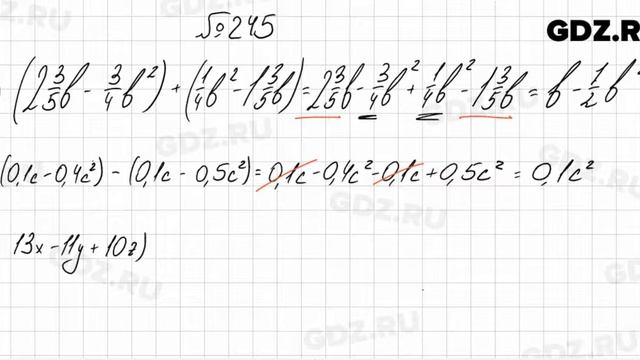 №245
GDZ.R
(2 3/5 b - 3/4 b²) + (1/4 b² - 1 3/5 b) = 2 3/5 b - 3/4 b² + 1/4 b² - 1 3/5 b = b - 1/2 b²
(0,1c - 0,4c²) - (0,1c - 0,5c²) = 0,1c - 0,4c² - 0,1c + 0,5c² = 0,1c²
13x - 11y + 10z)
GDZ.RU
GDZ.RU
GDZ.RU
GDZ.RU